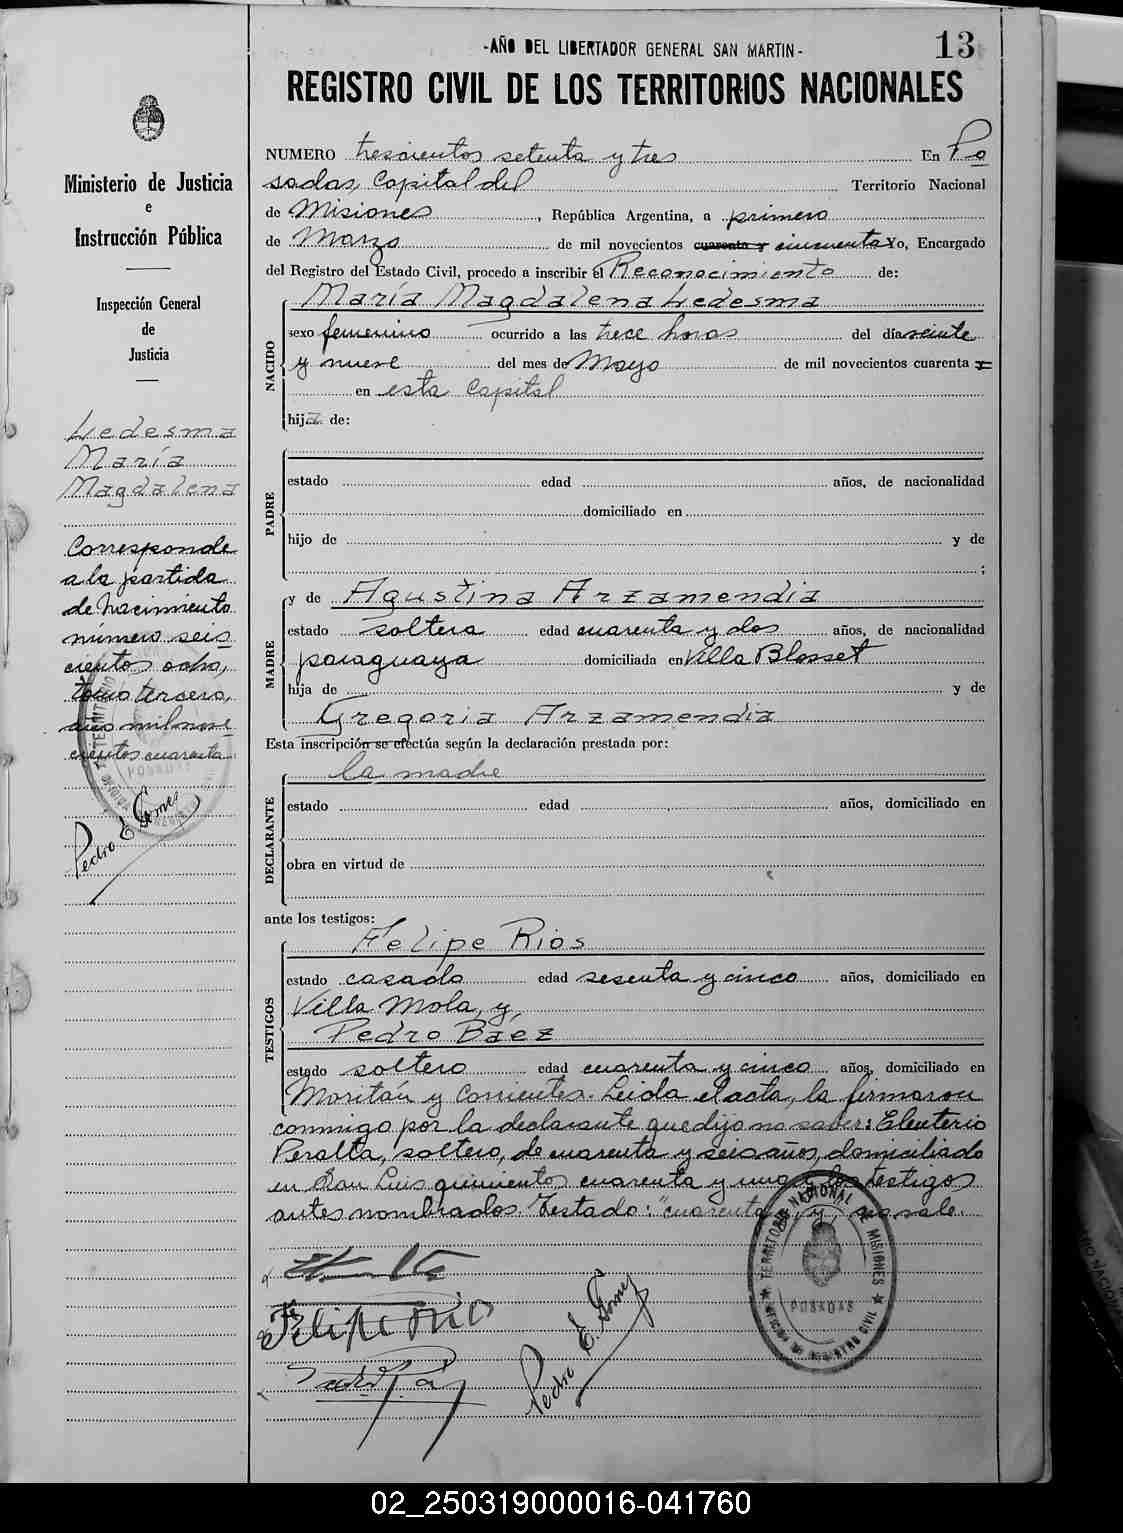 -AÑO DEL LIBERTADOR GENERAL SAN MARTIN-
13
REGISTRO CIVIL DE LOS TERRITORIOS NACIONALES
Ministerio de Justicia
e
Instrucción Pública
Inspección General
de
Justicia
Ledesma
María
Magdalena
Corresponde
a la partida
de Nacimiento
número seis
cientos ocho,
tomo tercero,
año mil nove
cientos cuarenta
POSADAS
Pedro E Gomez
NUMERO trescientos setenta y tres En Po
sadas, Capital del Territorio Nacional
de Misiones, República Argentina, a primero
de Marzo de mil novecientos cuarenta y cincuenta Yo, Encargado
del Registro del Estado Civil, procedo a inscribir el Reconocimiento de:
María Magdalena Ledesma
NACIDO
sexo femenino ocurrido a las trece horas del día veinte
y nueve del mes de Mayo de mil novecientos cuarenta y
en esta Capital
hija de:
PADRE
estado edad años, de nacionalidad
domiciliado en
hijo de y de
;
MADRE
y de Agustina Arzamendia
estado soltera edad cuarenta y dos años, de nacionalidad
paraguaya domiciliada en Villa Blosset
hija de y de
Gregoria Arzamendia
Esta inscripción se efectúa según la declaración prestada por:
la madre
DECLARANTE
estado edad años, domiciliado en
obra en virtud de
ante los testigos:
TESTIGOS
Felipe Rios
estado casado edad sesenta y cinco años, domiciliado en
Villa Mola, y,
Pedro Báez
estado soltero edad cuarenta y cinco años, domiciliado en
Moritán y Corrientes. Leida el acta, la firmaron
conmigo por la declarante que dijo no saber: Eleuterio
Peralta, soltero, de cuarenta y seis años, domiciliado
en San Luis quinientos cuarenta y uno y los testigos
antes nombrados. Testado: "cuarenta y" no vale.
TERRITORIO NACIONAL DE MISIONES
POSADAS
OFICINA DE REGISTRO CIVIL
Felipe Rio
Pedro E. Gomez
02_250319000016-041760